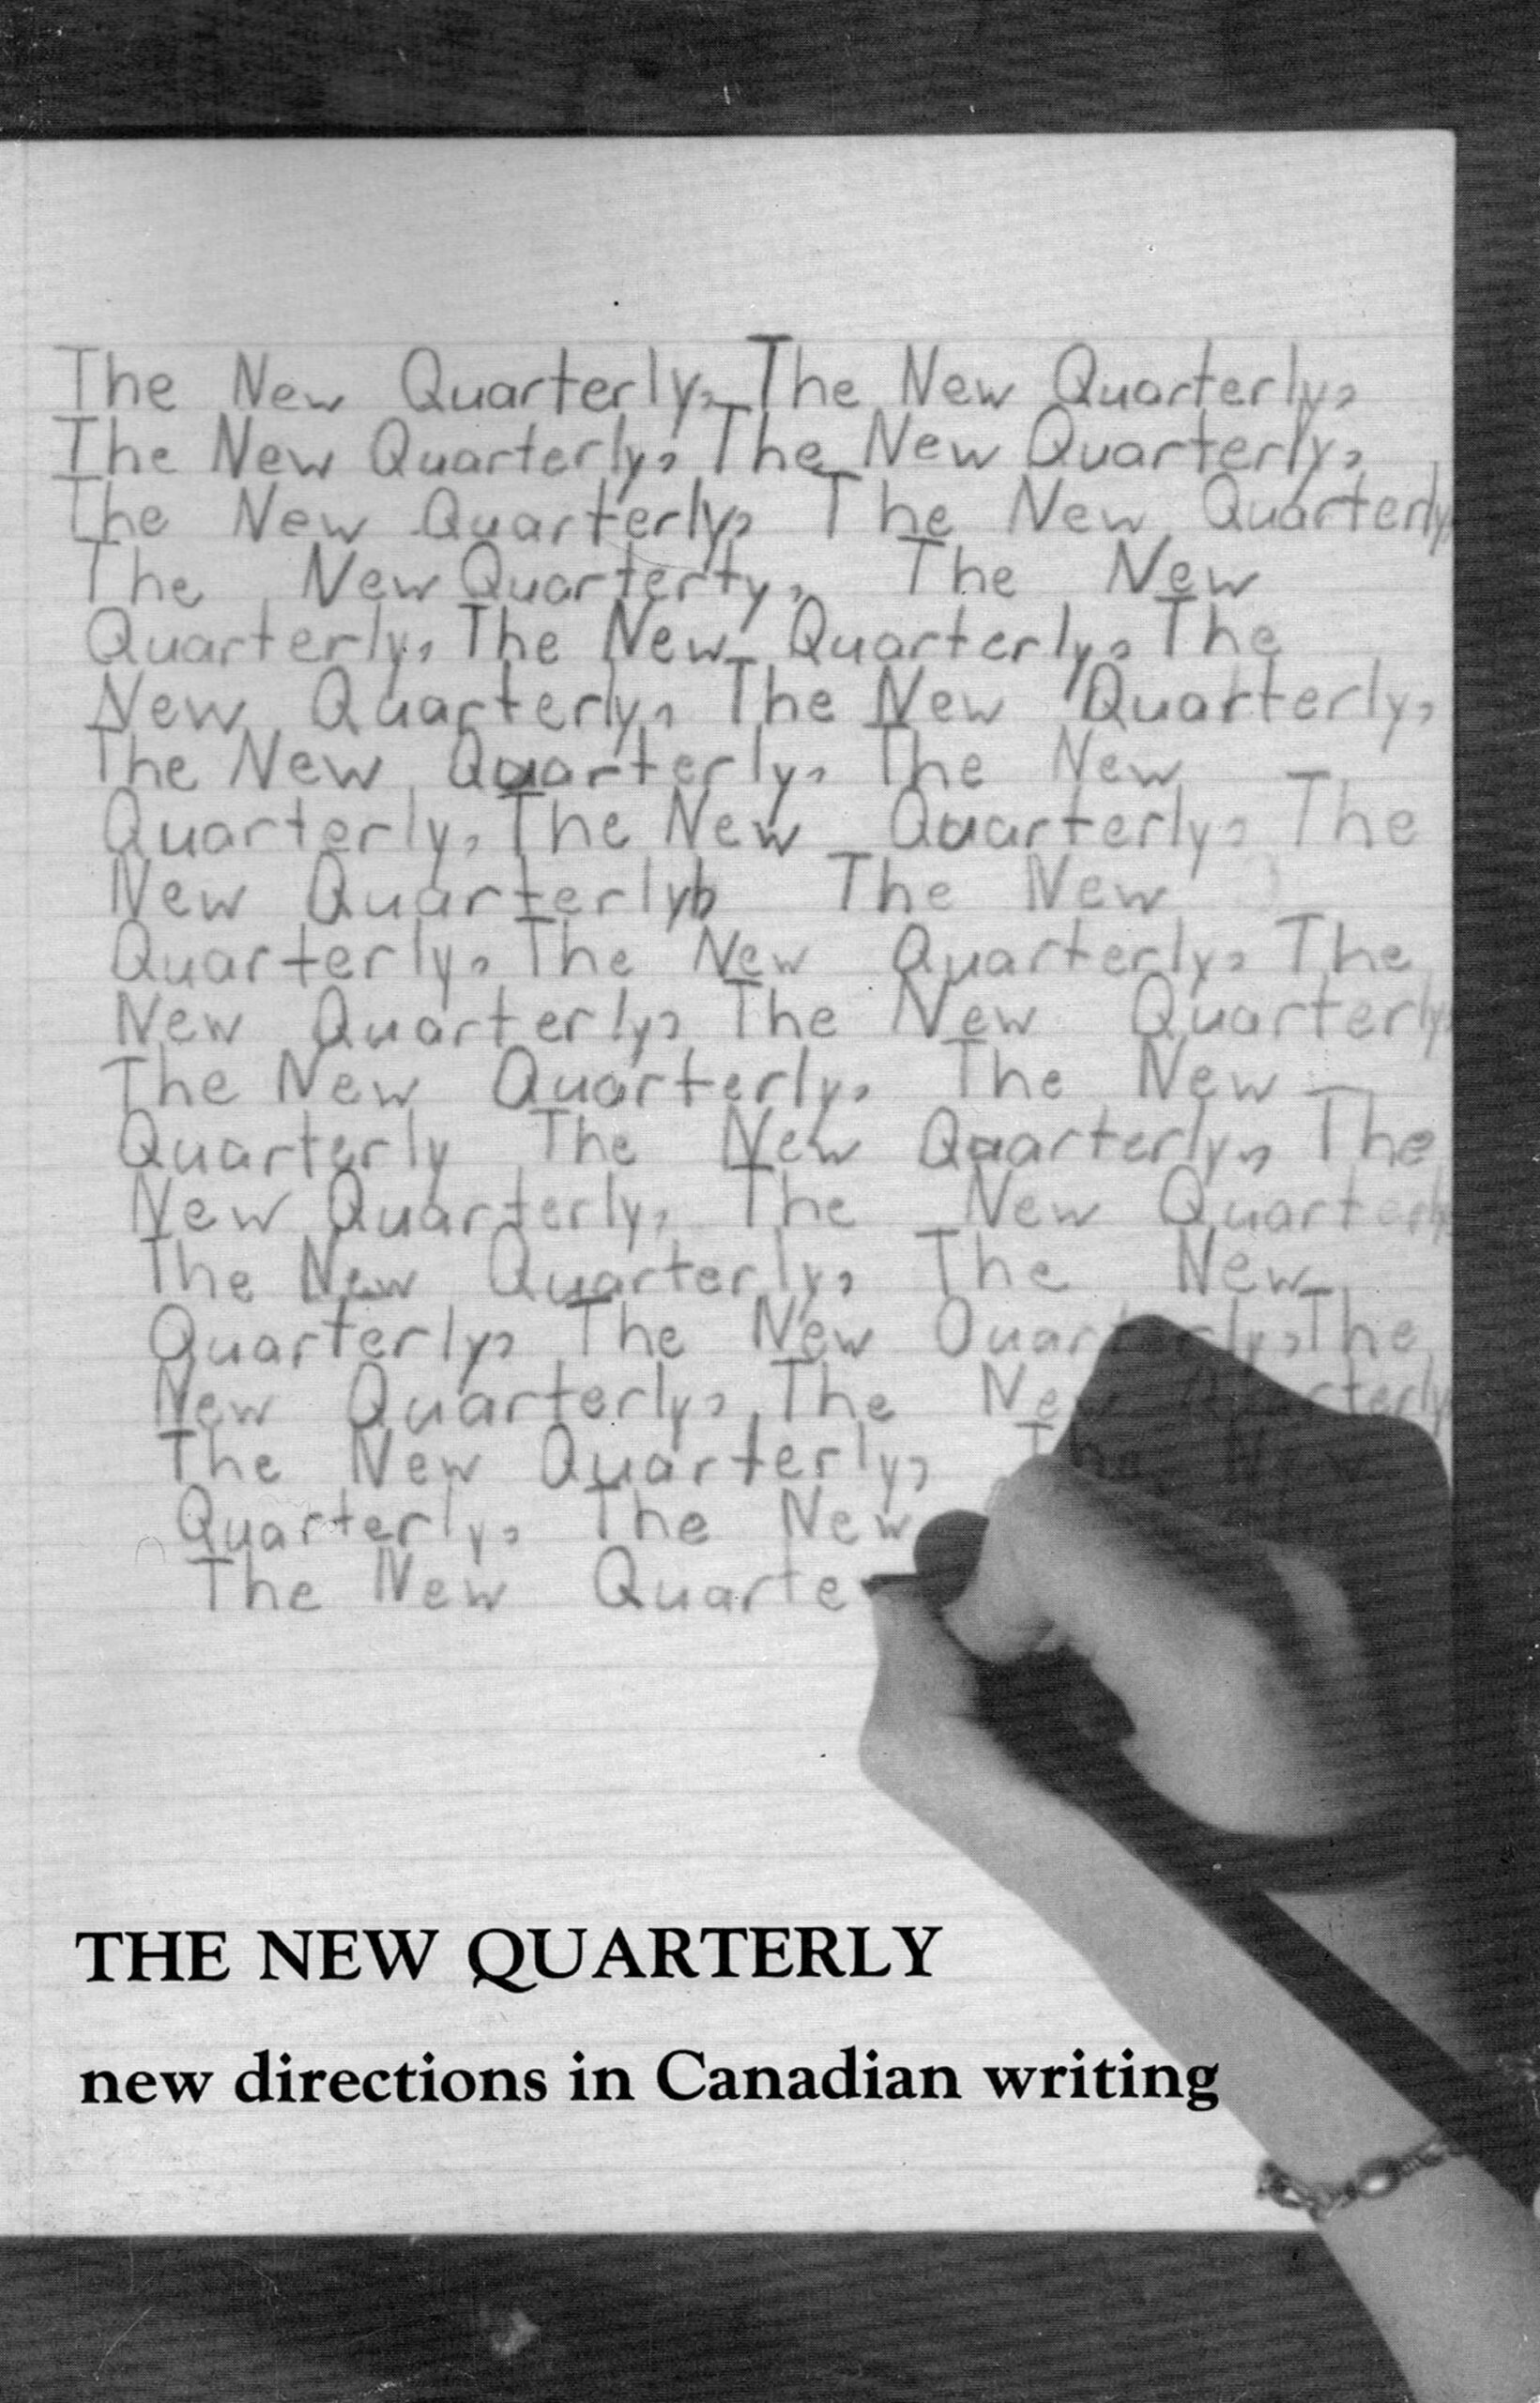 The New Quarterly, The New Quarterly,
The New Quarterly, The New Quarterly,
The New Quarterly, The New Quarterly,
The New Quarterly, The New
Quarterly, The New Quarterly, The
New Quarterly, The New Quarterly,
The New Quarterly, The New
Quarterly, The New Quarterly, The
New Quarterly, The New
Quarterly, The New Quarterly, The
New Quarterly, The New Quarterly
The New Quarterly, The New
Quarterly The New Quarterly, The
New Quarterly, The New Quarterly
The New Quarterly, The New
Quarterly, The New Quarterly, The
New Quarterly, The New Quarterly
The New Quarterly, The New
Quarterly, The New
The New Quarte
THE NEW QUARTERLY
new directions in Canadian writing